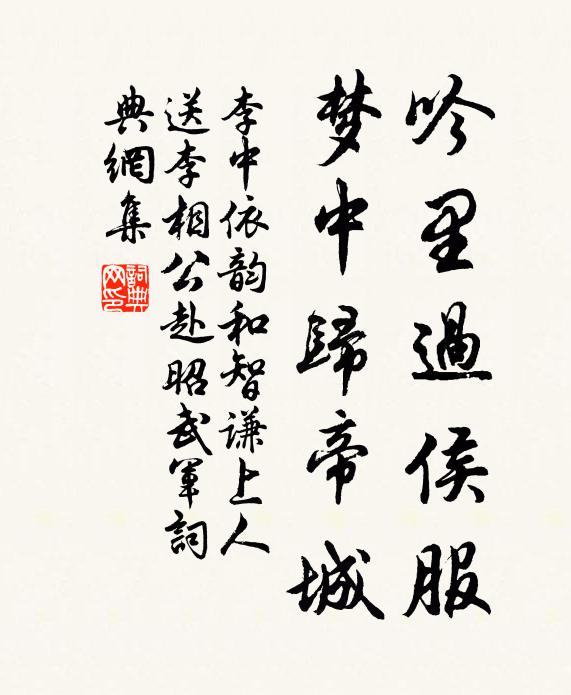 吟里過侯服
梦中歸帝城
李中依韵和智谦上人
送李相公赴昭武軍詞
典網集
詞典网印